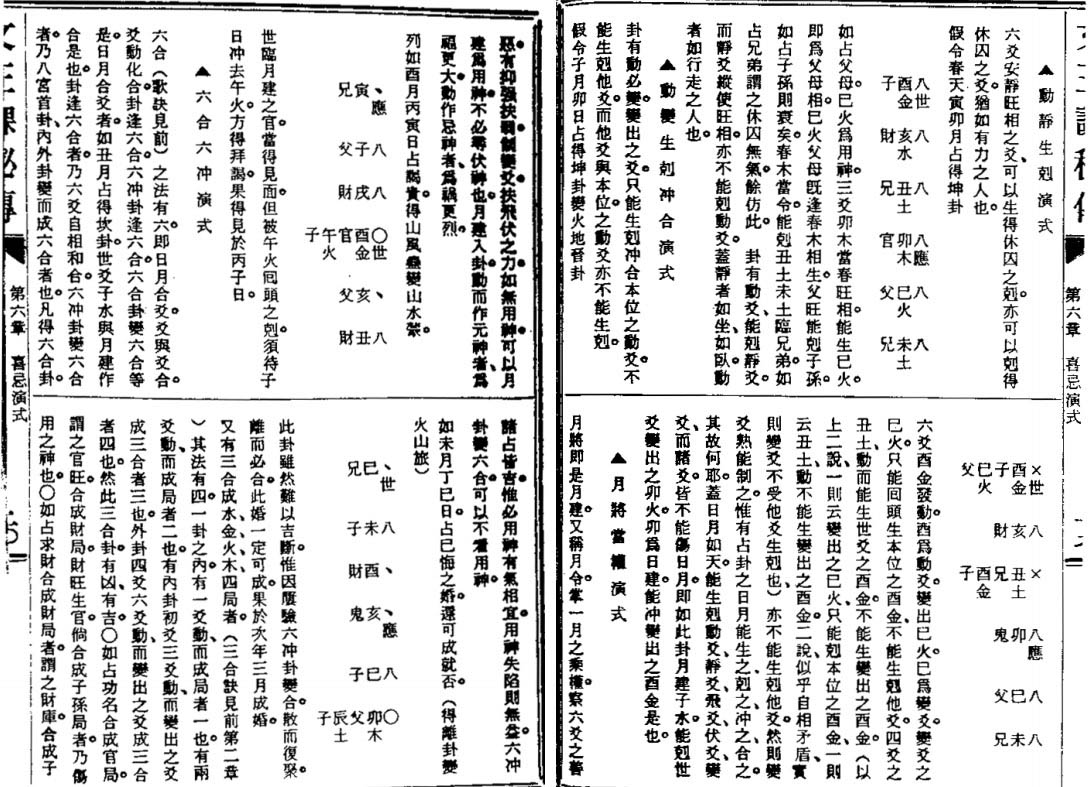 第六章　喜忌演式
▲動靜生剋演式
六爻安靜旺相之爻、可以生得休囚之剋。亦可以剋得
休囚之爻。猶如有力之人也。
假令春天寅卯月占得坤卦
子酉八世
金
財亥八
水
兄丑八
土
官卯八應
木
父巳八
火
兄未八
土
如占父母。巳火爲用神。三爻卯木當春旺相。能生巳火。
即爲父母相。巳火父母旣逢春木相生。父旺能剋子孫。
如占子孫則衰矣。春木當令。能剋丑土未土臨兄弟。如
占兄弟謂之休囚無氣。餘仿此　卦有動爻、能剋靜爻。
而靜爻縱使旺相、亦不能剋動爻。蓋靜者如坐、如臥、動
者如行走之人也。
▲動變生剋冲合演式
卦有動必變。變出之爻、只能生剋冲合本位之動爻。不
能生剋他爻。而他爻與本位之動爻亦不能生剋。
假令子月卯日占得坤卦變火地晉卦
父巳子酉×世
火　金
財亥八
子酉兄丑×
金　土
鬼卯八應
父巳八
兄未八
六爻酉金發動。酉爲動爻。變出巳火。巳爲變爻。變爻之
巳火。只能回頭生本位之酉金、不能生剋他爻。四爻之
丑土、動而能生世爻之酉金。不能生變出之酉金。（以
上二說、一則云變出之巳火、只能剋本位之酉金、一則
云丑土動、不能生變出之酉金。二說似乎自相矛盾。實
則變爻不受他爻生剋也、）亦不能生剋他爻。然則變
爻熟能制之。惟有占卦之日月、能生之、剋之、冲之、合之。
其故何耶。蓋日月如天。能生剋動爻靜爻。飛爻伏爻、變
爻。而諸爻皆不能傷日月。即如此卦月建子水。能剋世
爻變出之卯火。卯爲日建、能冲變出之酉金是也。
▲月將當權演式
月將即是月建。又稱月令。掌一月之乘權。察六爻之善
惡。有抑强扶弱制變爻扶飛伏之力。如無用神、可以月
建爲用神。不必尋伏神也。月建入卦動而作元神者、爲
福更大。動作忌神者、爲禍更烈。
列如酉月丙寅日占謁貴得山風蠱變山水蒙。
兄寅丶應
子父八
財戌八
子午官酉〇世
火　金
父亥丶
財丑八
世臨月建之官。當得見。而但被午火囘頭之剋。須待子
日冲去午火。方得拜謁。果得見於丙子日。
▲六合六冲演式
六合（歌訣見前）之法有六。即日月合爻。爻與爻合。
爻動化合。卦逢六合。六冲卦逢六合。六合卦變六合等
是。日月合爻者、如丑月占得坎卦、世爻子水與月建作
合是也。卦逢六合者、乃六爻自相和合。六冲卦變六合
者、乃八宮首卦、內外卦變而成六合者也。凡得六合卦。
諸占皆吉。惟必用神有氣相宜。用神失陷則無益。六冲
卦變六合、可以不看用神。
如未月丁巳日占已悔之婚還可成就否。（得離卦變
火山旅）
兄巳丶世
子未八
財酉丶
鬼亥丶應
子巳八
子辰父卯〇
土　木
此卦雖然難以吉斷。惟因屢驗六冲卦變合。散而復聚。
離而必合。此婚一定可成。果於次年三月成婚。
又有三合成水金火木四局者。（三合訣見前第二章
）其法有四。一卦之內、有一爻動而成局者一也。有兩
爻動、而成局者二也。有內卦初爻三爻動、而變出之爻
成三合者三也。外卦四爻六爻動、而變出之爻成三合
者四也。然此三合卦有凶有吉。〇如占功名、合成官局。
謂之官旺。合成財局。財旺生官。倘合成子孫局者、乃傷
用之神也。〇如占求財、合成財局者、謂之財庫。合成子
第六章　喜忌演式